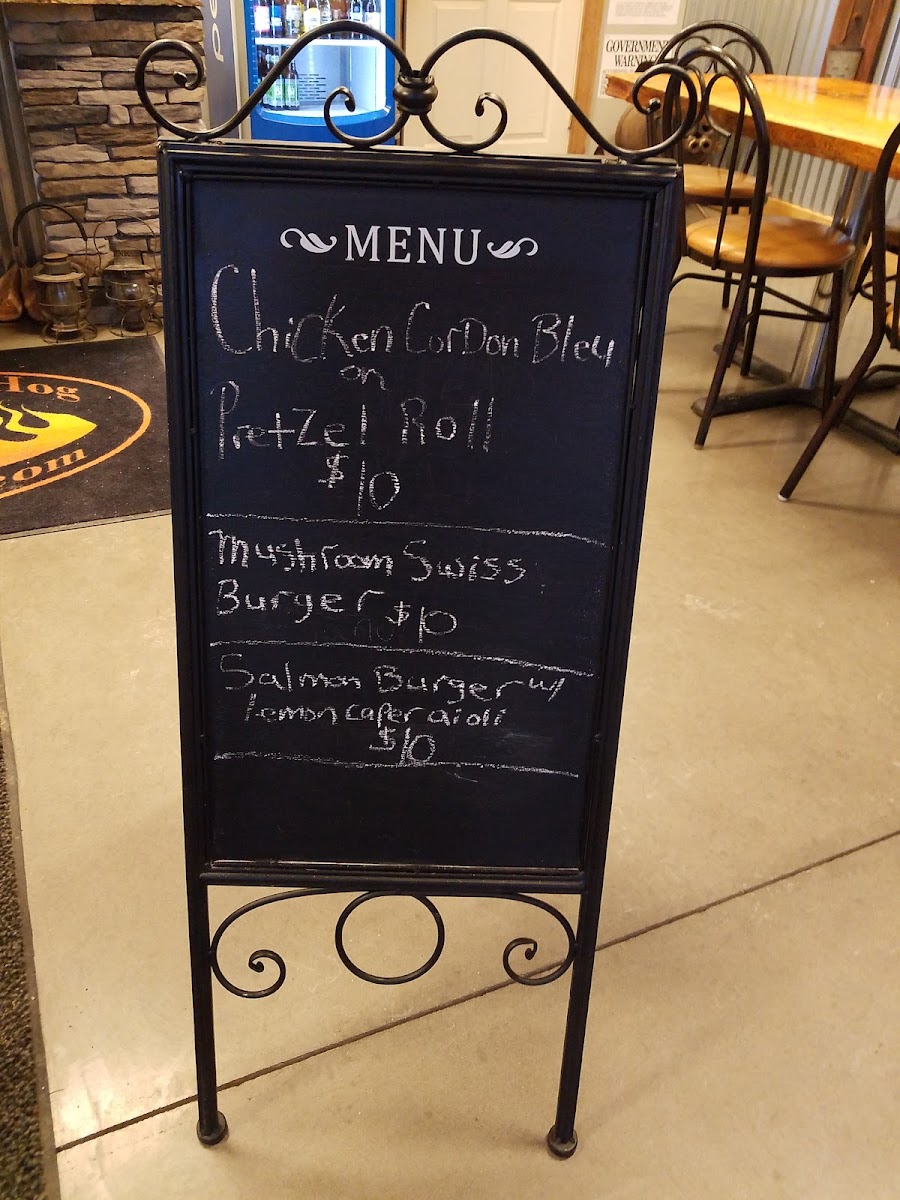 GOVERNMENT
WARNING
MENU
Chicken CorDon Bleu
on
Pretzel Roll
$10
Mushroom Swiss
Burger $10
Salmon Burger w/
lemon caper aioli
$10
Hog
com